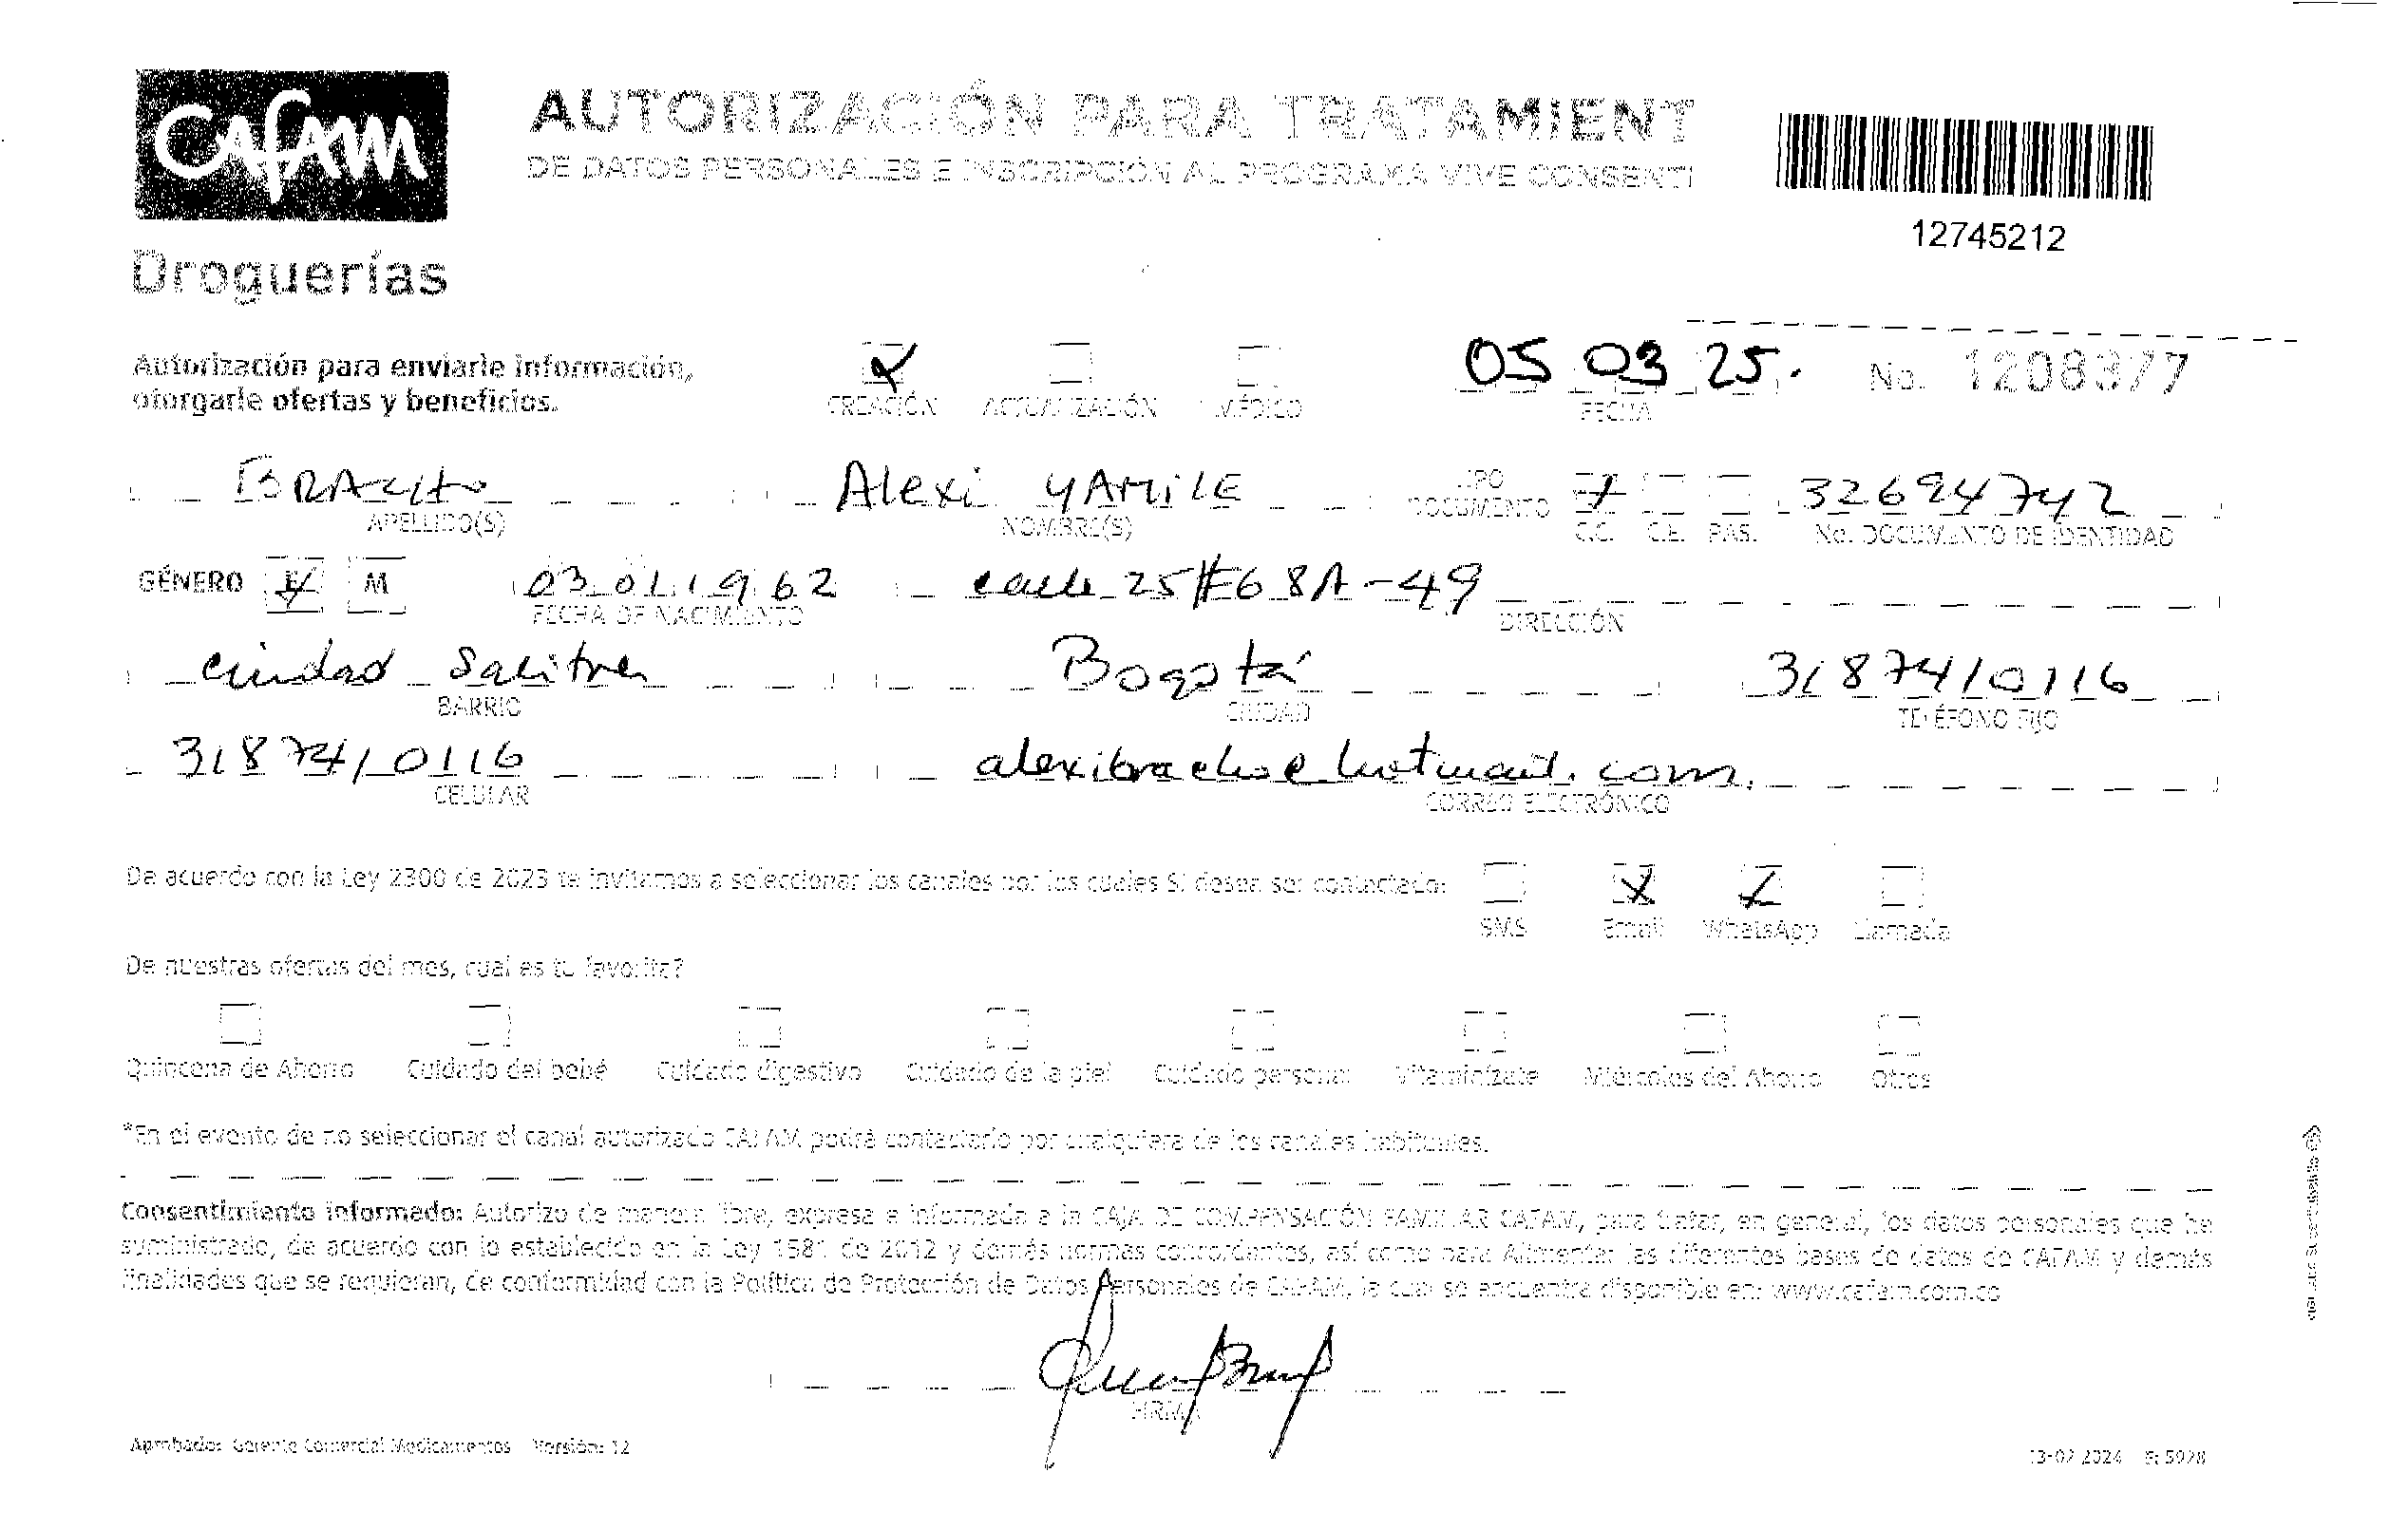 Cafam
Droguerías
AUTORIZACIÓN PARA TRATAMIENT
DE DATOS PERSONALES E INSCRIPCIÓN AL PROGRAMA VIVE CONSENTI
12745212
Autorización para enviarle información,
otorgarle ofertas y beneficios.
CREACIÓN ACTUALIZACIÓN MÉDICO
05 03 25.
FECHA
No. 1208377
BRACHO Alexi YAMILE
APELLIDO(S) NOMBRE(S)
TIPO DOCUMENTO C.C. C.E. PAS.
32694742
No. DOCUMENTO DE IDENTIDAD
GÉNERO F M 03 01 1962 calle 25 #68A-49
FECHA DE NACIMIENTO DIRECCIÓN
ciudad Salitre Bogotá 3187410116
BARRIO CIUDAD TELÉFONO FIJO
3187410116 alexibracho@hotmail.com.
CELULAR CORREO ELECTRÓNICO
De acuerdo con la Ley 2300 de 2023 te invitamos a seleccionar los canales por los cuales SI desea ser contactado:
SMS Email WhatsApp Llamada
De nuestras ofertas del mes, cual es tu favorita?
Quincena de Ahorro Cuidado del bebé Cuidado digestivo Cuidado de la piel Cuidado personal Vitaminízate Miércoles del Ahorro Otros
*En el evento de no seleccionar el canal autorizado CAFAM podrá contactarlo por cualquiera de los canales habituales.
Consentimiento informado: Autorizo de manera libre, expresa e informada a la CAJA DE COMPENSACIÓN FAMILIAR CAFAM, para tratar, en general, los datos personales que he
suministrado, de acuerdo con lo establecido en la Ley 1581 de 2012 y demás normas concordantes, así como para Alimentar las diferentes bases de datos de CAFAM y demás
finalidades que se requieran, de conformidad con la Política de Protección de Datos Personales de CAFAM, la cual se encuentra disponible en: www.cafam.com.co
FIRMA
Aprobado: Gerente Comercial Medicamentos Versión: 12
13-02-2024